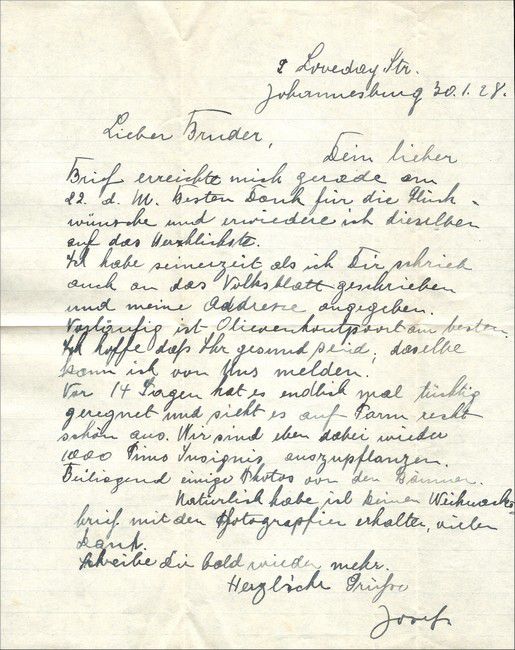 9 Loveday Str.
Johannesburg 30.1.28.
Lieber Bruder,
Dein lieber
Brief erreichte mich gerade am
22. d. M. Besten Dank für die Glück-
wünsche und erwiedere ich dieselben
auf das Herzlichste.
Ich habe seinerzeit als ich Dir schrieb
auch an das Volksblatt geschrieben
und meine Addresse angegeben.
Vorläufig ist Olievenhoutpoort am besten.
Ich hoffe dass Ihr gesund seid, dasselbe
kann ich von Uns melden.
Vor 14 Tagen hat es endlich mal tüchtig
geregnet und sieht es auf Farm recht
schön aus. Wir sind eben dabei wieder
1000 Pinus Insignis auszupflanzen.
Beiliegend einige Photos von den Bäumen.
Natürlich habe ich Deinen Weihnachts-
brief mit den Photograpfien erhalten, vielen
Dank.
Schreibe Dir bald wieder mehr.
Herzliche Grüsse
Josef